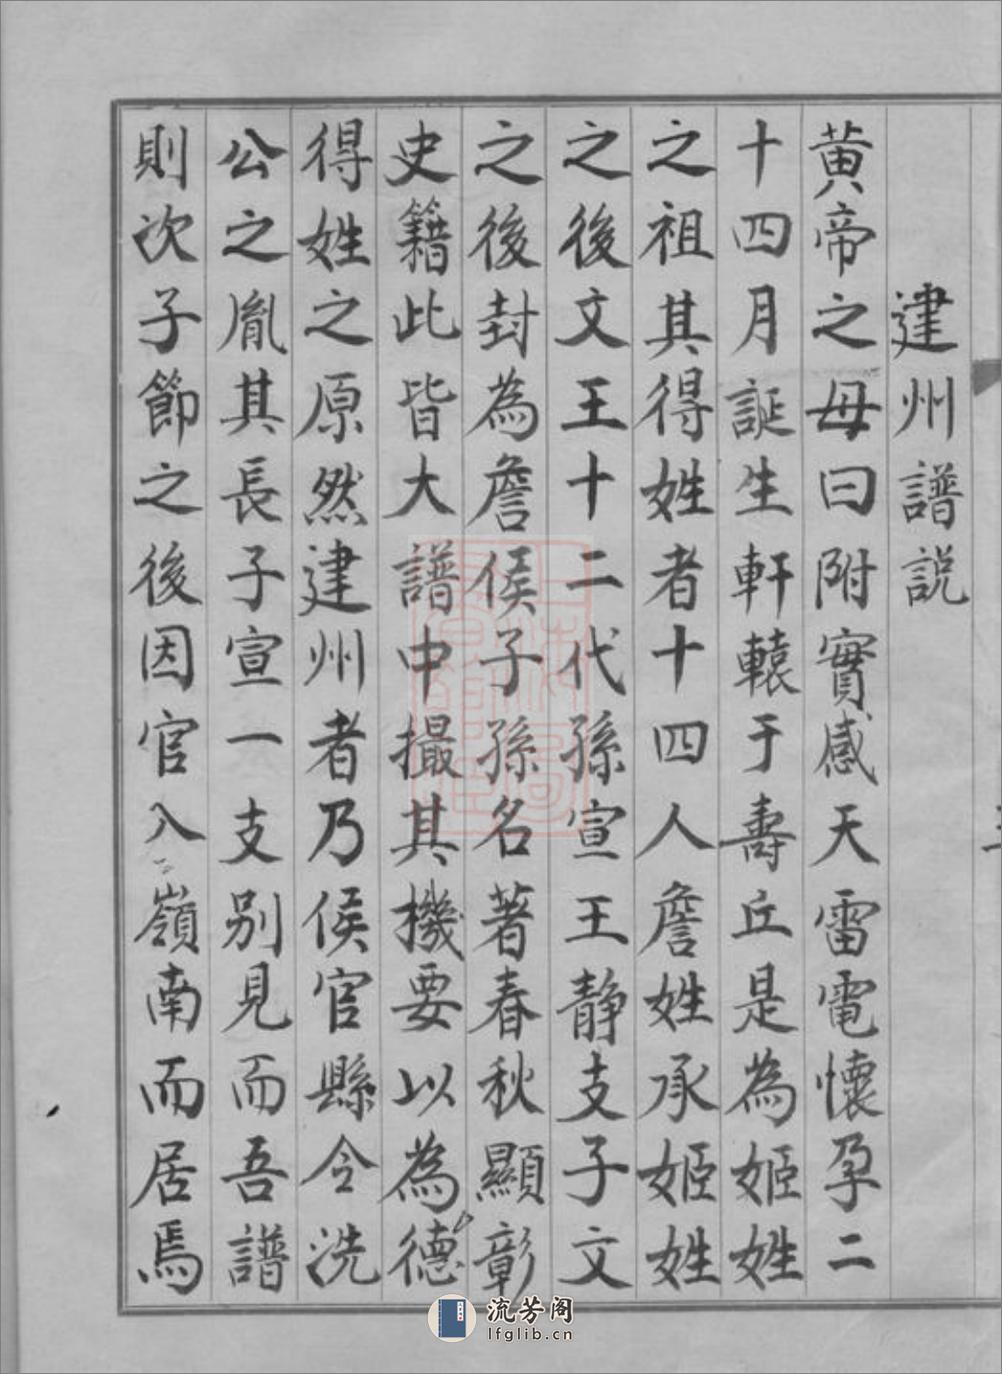 建州譜説
黄帝之母曰附實感天雷電懷孕二
十四月誕生軒轅于壽丘是為姬姓
之祖其得姓者十四人詹姓承姬姓
之後文王十二代孫宣王靜支子文
之後封為詹侯子孫名著春秋顯彰
史籍此皆大譜中撮其機要以為德
得姓之原然建州者乃侯官縣令洗
公之胤其長子宣一支别見而吾譜
則次子節之後因官入嶺南而居焉
流芳阁
lfglib.cn